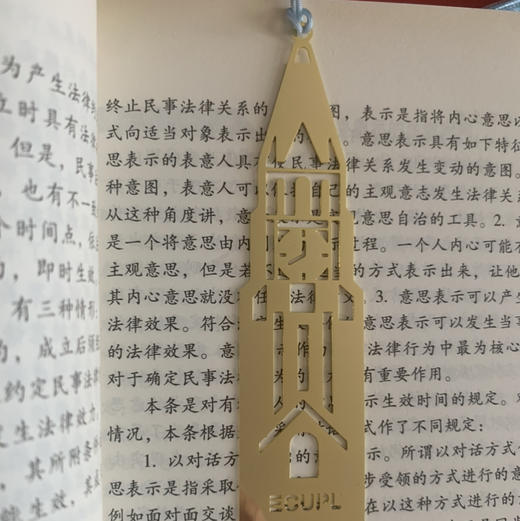 为产生法律
立时具有法
但是，民事
也有不一
个时间点，
，即时生效
有三种情形
，成立后
约定民事法
发生法律效力
，其所附条
就生效，其
终止民事法律关系的 图，表示是指将内心意思以
式向适当对象表示出 的 。意思表示具有如下特征
思表示的表意人具 使民事法律关系发生变动的意图。
种意图，表意人可以依 自己的主观意志发生法律关系
从这种角度讲，意 意思自治的工具。2.
是一个将意思由内 示过程。一个人内心可能
主观意思，但是若不 的方式表示出来，让他
其内心意思就没 任 法律 义。3. 意思表示可以产生
法律效果。符合 生 意思表示可以发生当
的法律效果。意 示作 法律行为中最为核心
对于确定民事法 为的 有重要作用。
本条是对有 人的 示生效时间的规定。对
情况，本条根据 式作了不同规定：
1. 以对话方 的 示。所谓以对话方式
思表示是指采取 步受领的方式进行的意
例如面对面交谈 在以这种方式进行的
ECUPL